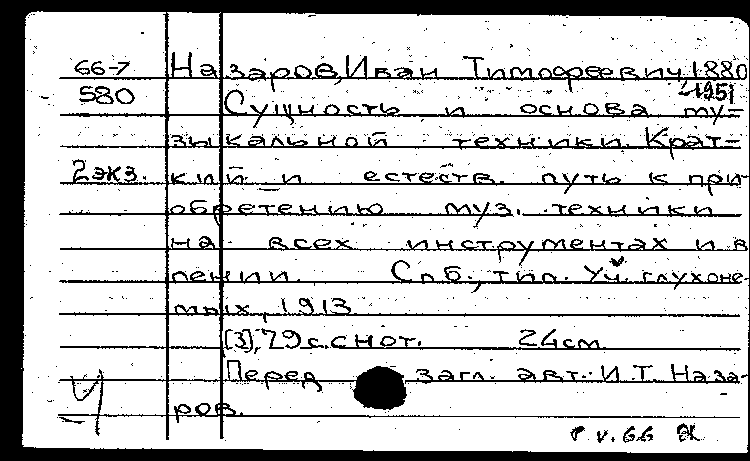 66-7 Назаров, Иван Тимофеевич, 1880
-1951
580 Сущность и основа му=
зыкальной техники. Крат=
2 экз. кий и естеств. путь к при
обретению муз. техники
на всех инструментах и в
пении. Спб., тип. Уч. глухоне-
мых, 1913
[3], 79 с. с нот. 24 см.
Перед загл. авт.: И.Т. Наза-
ров.
V.66